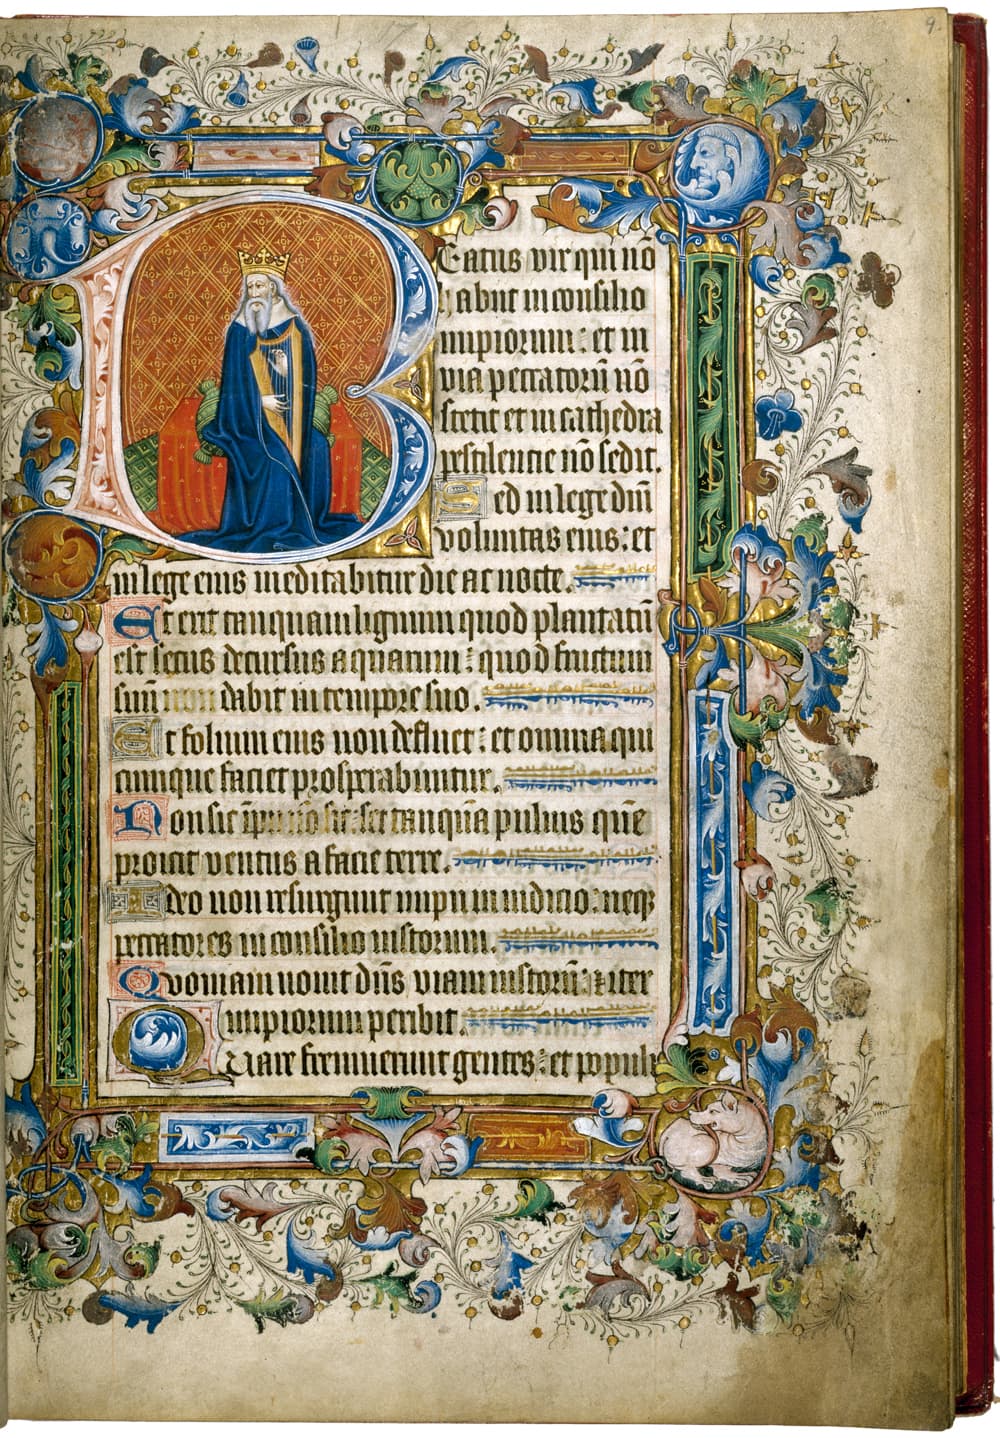 9
Beatus vir qui nō
abiit in consilio
impiorum: et in
via peccatorū nō
stetit et in cathedra
pestilencie nō sedit.
Sed in lege dn̄i
voluntas eius: et
in lege eius meditabitur die ac nocte.
Et erit tanquam lignum quod plantatū
est secus decursus aquarum: quod fructum
suū dabit in tempore suo.
Et folium eius non defluet: et omnia qui
cumque faciet prosperabuntur.
Non sic īpii nō sic: set tanquā puluis quē
proicit ventus a facie terre.
Ideo non resurgunt impii in iudicio: neqꝫ
peccatores in consilio iustorum.
Quoniam nouit dn̄s viam iustorū: ⁊ iter
impiorum peribit.
Quare fremuerunt gentes: et populi